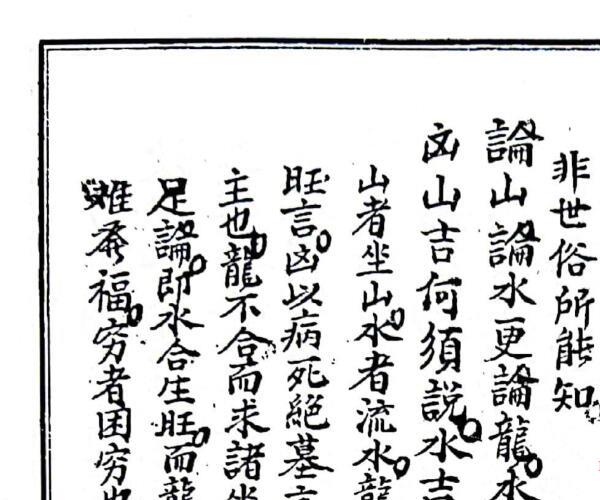 非世俗所能知
論山論水更論龍水
凶山吉何須説水吉
山者坐山水者流水龍
旺言凶以病死絕墓言
主也龍不合而求諸坐
足論即水合生旺而龍
雖發福穷者困穷也